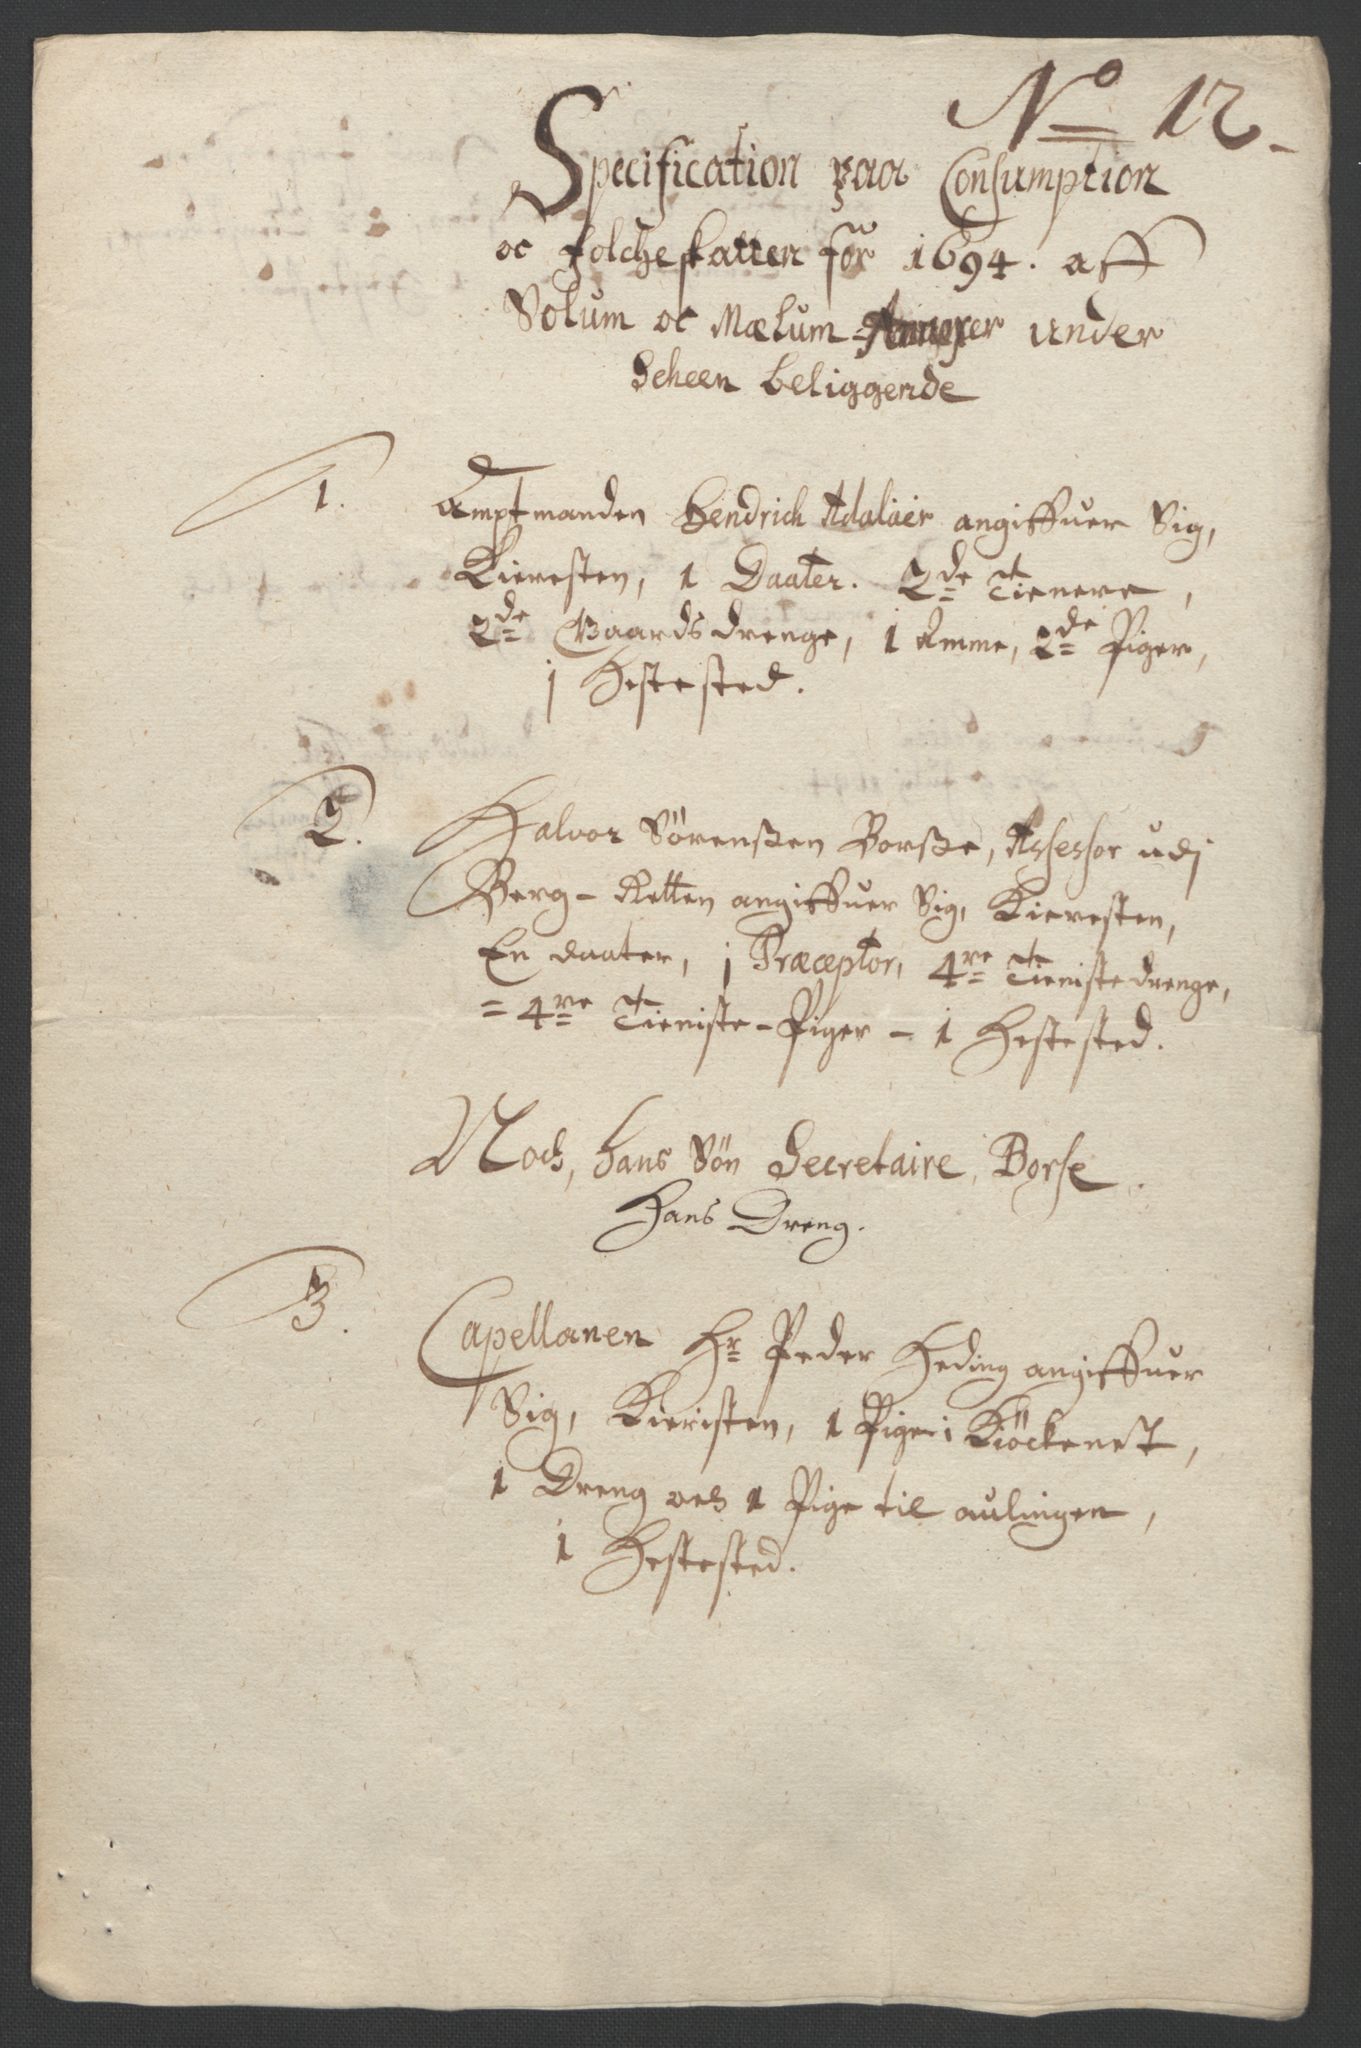 No 12.
Specification paa Consumption
oc folcheskatten for 1694. aff
Solum oc Mælum Annexer under
Scheen beliggende
1. Amptmanden Hendrich Adalaer angiffuer Sig,
Kieresten, 1 Daater. 2de Tienere,
2de Gaardsdrenge, 1 Amme, 2de Piger,
j Hestested.
2. Halvor Sørenßen Borße, Assessor udj
Berg-Retten angiffuer Sig, Kieresten,
En daater, j Præceptor, 4re Tienistedrenge,
= 4re Tieniste-Piger - 1 Hestested.
Noch, hans Søn Secretaire Borse.
Hans Dreng.
3. Capellanen Hr Peder Heding angiffuer
Sig, Kieristen, 1 Pige i Kiöckenet,
1 Dreng och 1 Pige til aulingen,
1 Hestested.